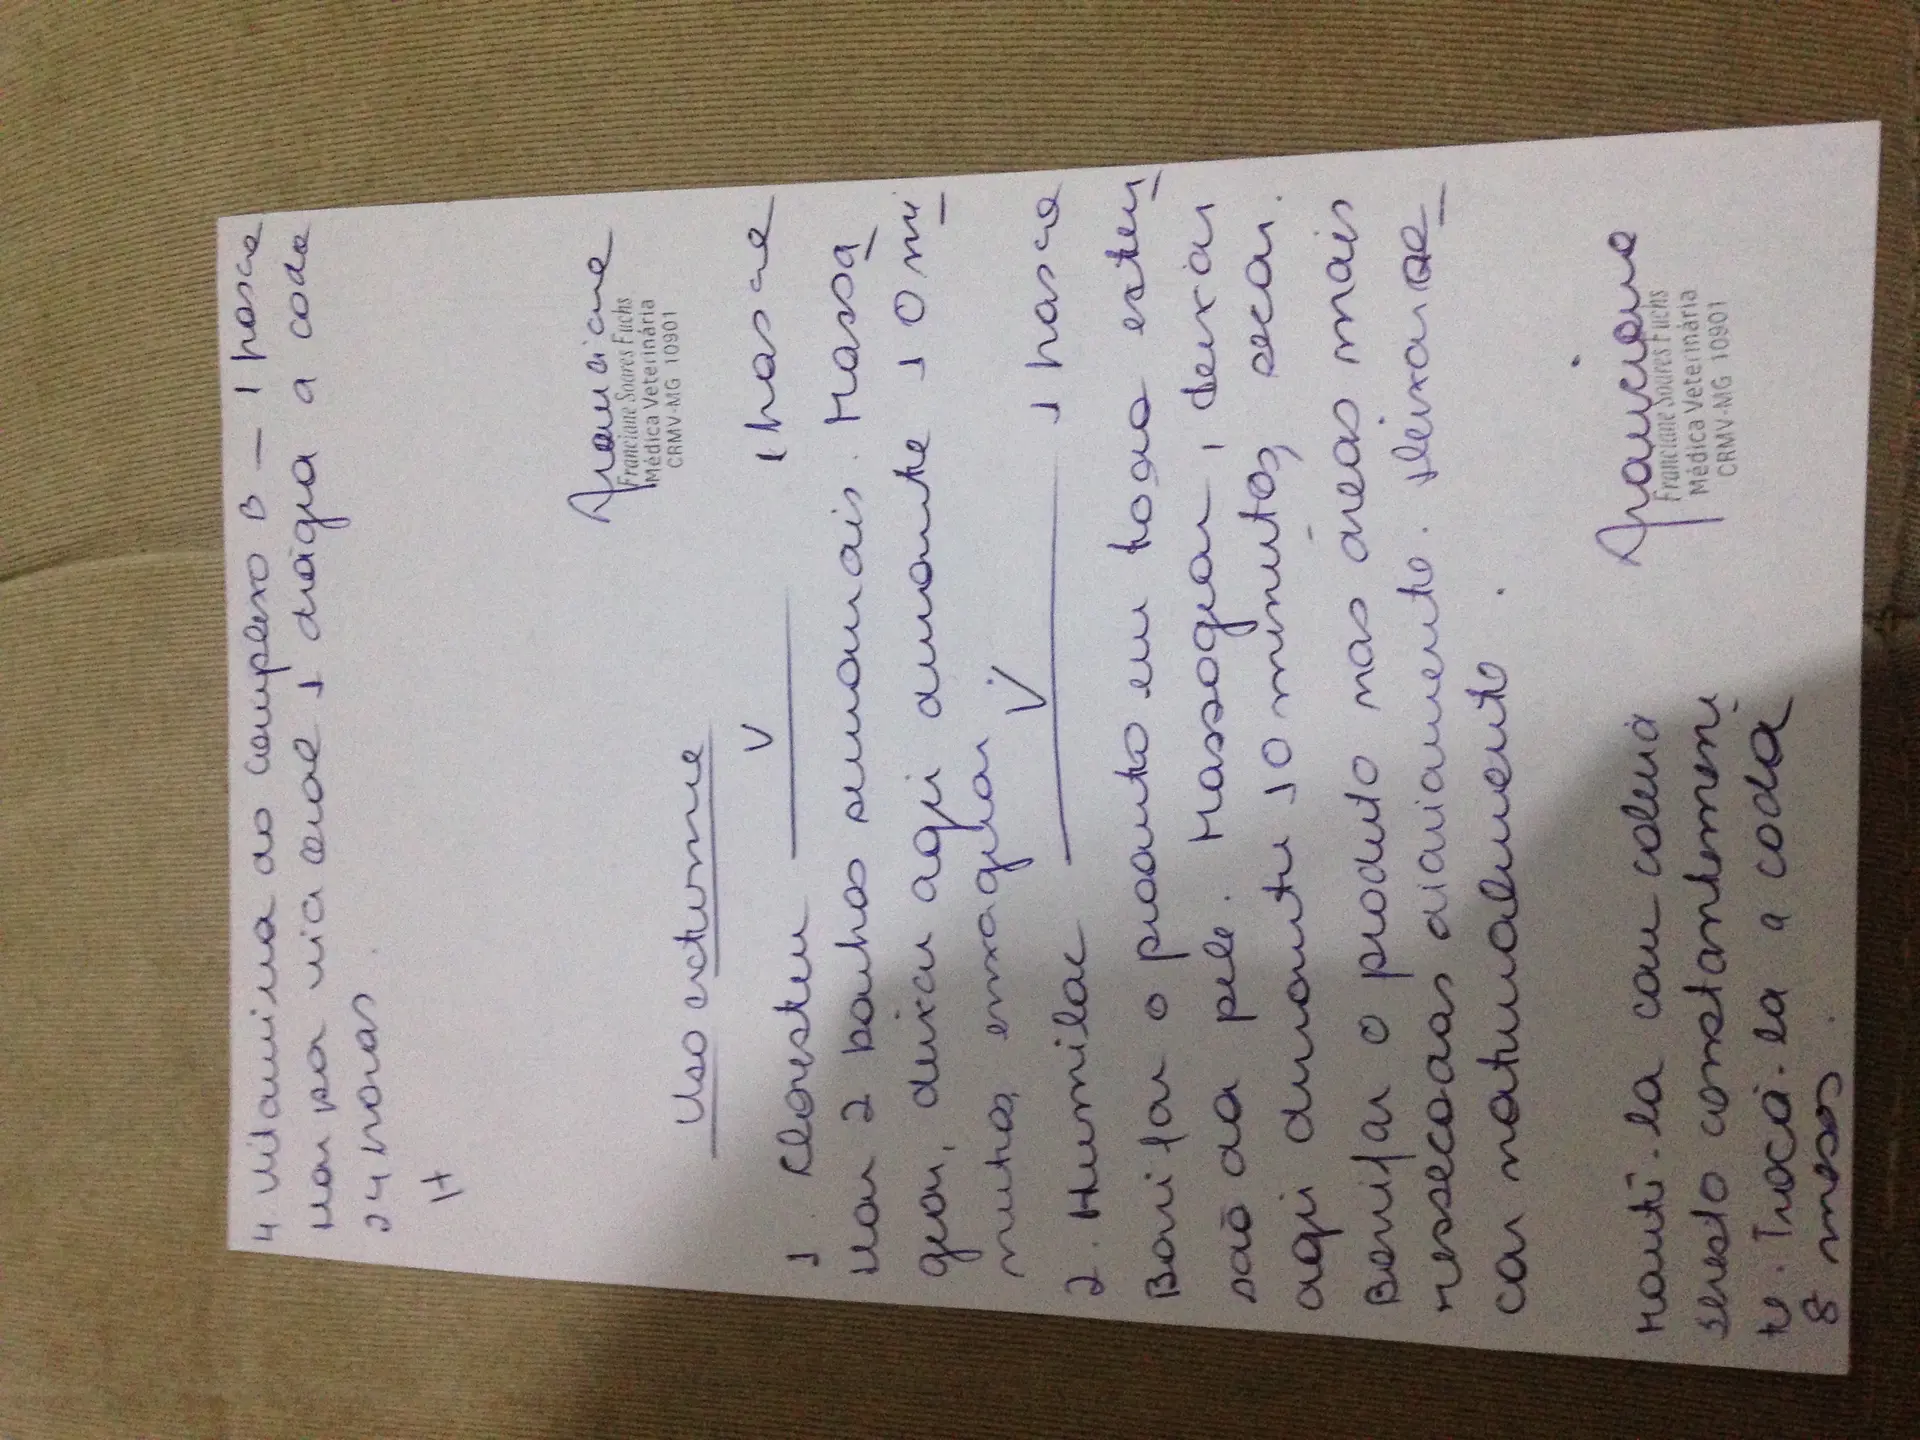 4. Vitamina do complexo B — 1 frasco
Dar por via oral 1 drágea a cada
24 horas.
Franciane
Franciane Soares Fuchs
Médica Veterinária
CRMV-MG 10901
Uso externo
1. Cloresten 1 frasco
Dar 2 banhos semanais. Massa
gear, deixar agir durante 10 mi
nutos, enxaguar
2. Humilac 1 frasco
Borrifar o produto em toda exten
são da pele. Massagear, deixar
agir durante 10 minutos, secar.
Borrifar o produto nas áreas mais
ressecadas diariamente. Deixar se
car naturalmente.
Franciane
Franciane Soares Fuchs
Médica Veterinária
CRMV-MG 10901
Mantê-la com coleira
Seresto constantemen
te. Trocá-la a cada
8 meses.